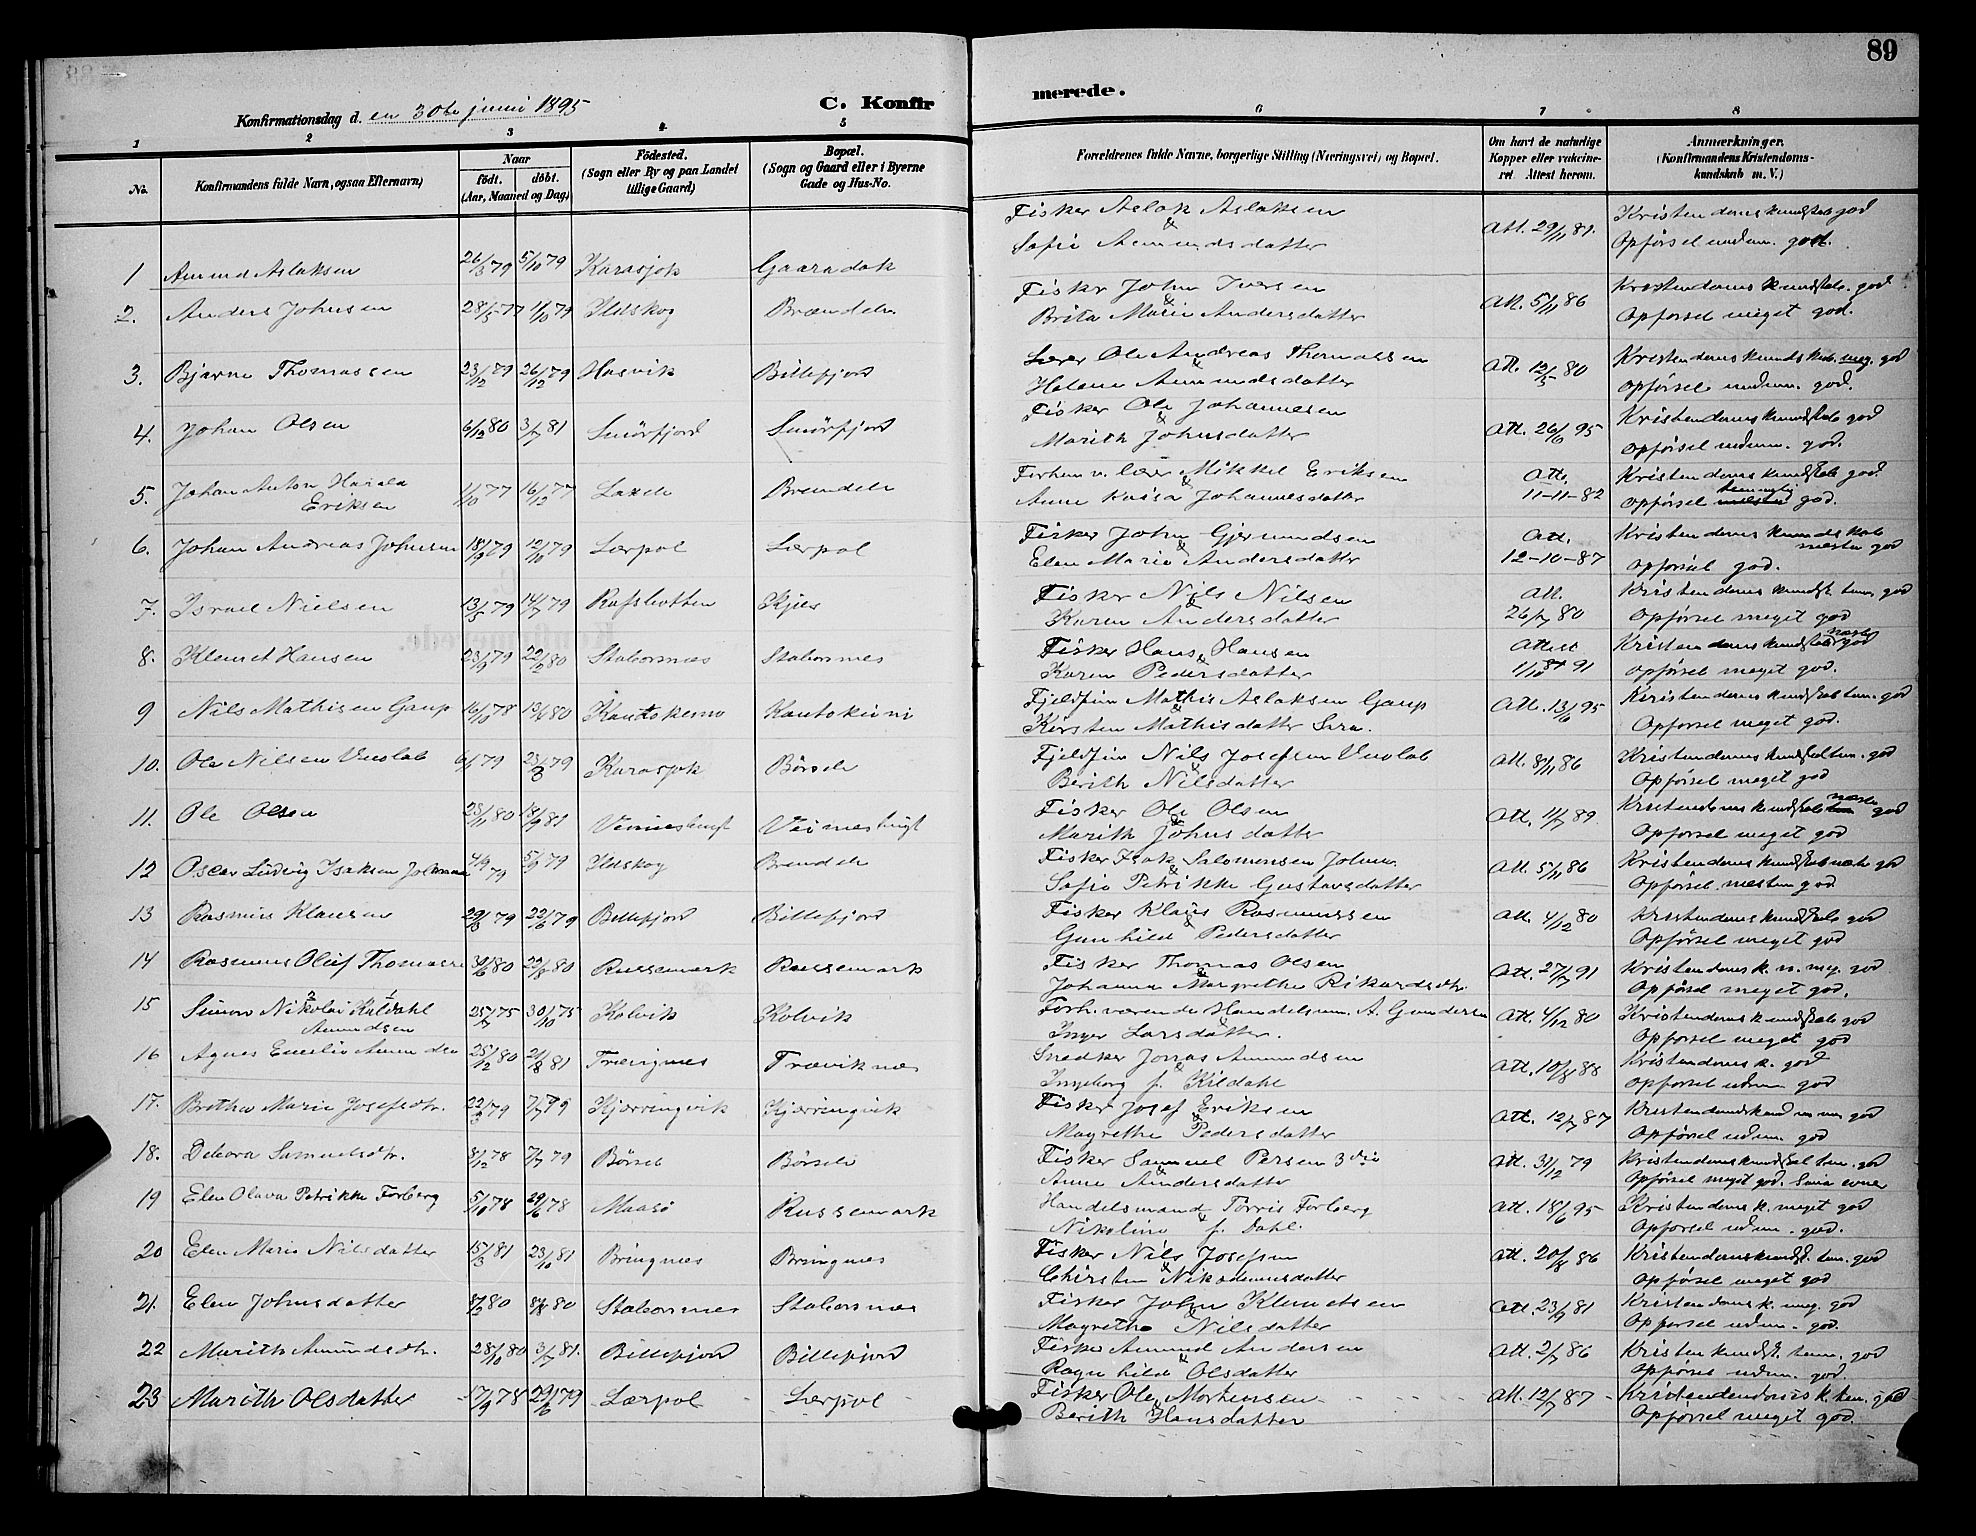 89
C. Konfirmerede.
Konfirmationsdag d. en 30te juni 1895
1 2 3 4 5 6 7 8
No. Konfirmandens fulde Navn, ogsaa Efternavn) Naar födt. döbt. (Aar, Maaned og Dag) Födested. (Sogn eller By og paa Landet tillige Gaard) Bopæl. (Sogn og Gaard eller i Byerne Gade og Hus-No. Forældrenes fulde Navne, borgerlige Stilling (Næringsvei) og Bopæl. Om havt de naturlige Kopper eller vakcineret. Attest herom. Anmærkninger. (Konfirmandens Kristendomskundskab m. V.)
1 Amund Aslaksen 5/10 79 Karasjok Fisker Aslak Aslaksen & Sofie Amundsdatter Att. 29/11 81. Kristendomskundskab god Opførsel udm. god.
2. Anders Johnsen 28/5 77 1/10 79 Ildskog Brændelv Fisker John Iversen & Brita Marie Andersdatter Att. 5/11 86 Kristendomskundskab. god Opførsel meget god.
3. Bjarne Thomassen 23/12 79 26/12 79 Hasvik Billefjord Lærer Ole Andreas Thomassen & Helene Amundsdatter Att. 12/5 80 Kristendomskundskab. meg. god Opførsel udm. god.
4. Johan Olsen 6/12 80 3/7 81 Smörfjord Smörfjord Fisker Ole Johannesen & Marith Johnsdatter Att. 26/6 95 Kristendomskundskab god Opførsel udm. god.
5. Johan Anton Harald Eriksen 1/10 77 16/12 77 Laxelv Brendelv Forhen v. lærer Mikkel Eriksen & Anne Kaisa Johannesdatter Att. 11-11-82 Kristendomskundskab god Opførsel temmelig god.
6. Johan Andreas Johnsen 18/9 79 12/10 79 Lærpol Lærpol Fisker John Gjermundsen & Elen Marie Andersdatter Att. 12-10-87 Kristendomskundskab næsten god Opførsel god.
7. Israel Nielsen 13/5 79 14/7 79 Rafsbotten Kjæs Fisker Nils Nilsen & Karen Andersdatter Att. 26/7 80 Kristendomskundsk. tem. god Opførsel meget god
8. Klemet Hansen 23/9 79 22/2 80 Staborsnæs Stabornes Fisker Hans Hansen & Karen Pedersdatter Attest 91 Kristendomskundskab næsten god Opførsel meget god.
9 Nils Mathisen Gaup 16/10 78 80 Kautokeino Kautokeini Fjeldfin Mathis Aslaksen Gaup & Kirsten Mathisdatter Sara. Att. 13/6 95 Kristendomskundskab tem. god Opførsel meget god.
10. Ole Nilsen Vuolab 79 79 Karasjok Børselv Fjeldfin Nils Josefsen Vuolab & Berith Nilsdatter Att. 8/11 86 Kristendomskundskab tem. god Opførsel meget god
11. Ole Olsen 80 81 Veinesbugt Fisker Ole Olsen & Marith Johnsdatter Att. 11/7 89. Kristendomskundskab næsten god Opførsel meget god
12 Oscar Ludvig Isaksen 4/9 79 79 Ildskog Brendelv Fisker Isak Salomonsen & Sofie Petrikke Gustavsdatter Att. 5/11 86 Kristendomskundskab næst. god Opførsel næsten god
13 Rasmus Klausen 79 22/6 79 Billefjord Billefjord Fisker Klaus Rasmussen & Gunhild Pedersdatter Att. 4/12 80 Kristendomskundskab god Opførsel meget god
14 Rasmus Oluf Thomassen 30/6 80 80 Russemark Russemark Fisker Thomas Olsen & Johanna Margrethe Rikardsdtr. Att. 27/7 91 Kristendomsk. m. meg. god Opførsel meget god.
15 Simon Nikolai Kildahl Amundsen 25/7 75 30/10 75 Kolvik Kolvik Forh. værende Handelsm. A. Gundersen & Inger Larsdatter. Att. 4/12 80 Kristendomskundskab god Opførsel meget god
16 Agnes Emilie Amundsen 25/12 80 21/8 81 Snedker Jonas Amundsen & Ingeborg f. Kildahl Att. 10/8 88 Kristendomsk. god Opførsel udm god
17. Brethe Marie Josefsdtr. 22/3 79 7/7 79 Kjærringvik Kjærringvik Fisker Josef Eriksen & Magrethe Pedersdatter Att. 12/7 87 god Opførsel udm. god
18. Debora Samuelsdtr. 8/12 78 7/7 79 Børselv Børselv Fisker Samuel Persen 3die & Anne Andersdatter Att. 31/12 79 Kristendomskundskab tem. god Opførsel meget god. Smaa evner
19 Elen Olava Petrikke Forberg 78 78 Maasø Russemark Handelsmand Torris Forberg & Nikoline f. Dahl. Att. 18/6 95 Kristendomsk. meget god Opførsel udm. god.
20 Elen Marie Nilsdatter 15/3 81 23/10 81 Bringnes Bringnes Fisker Nils Josefsen & Chirsten Nikodemusdatter Att. 20/8 86 Kristendomskundsk. tem. god Opførsel meget god
21. Elen Johnsdatter 8/2 80 80 Stabornes Stabornæs Fisker John Klemetsen & Magrethe Nilsdatter Att. 23/9 81 Kristendomsk. meg. god Opførsel udm. god.
22 Marith Amundsdtr. 28/10 80 3/7 81. Billefjord Billefjord Fisker Amund Andersen & Ragnhild Olsdatter Att. 2/7 86 Kristenkundsk. tem. god Opførsel udm. god
23 Marith Olsdatter 17/9 78 29/6 79 Lærpol Lærpol Fisker Ole Mortensen & Berith Hansdatter Att. 12/7 87 Kristendendomsk. tem. god Opførsel meget god.